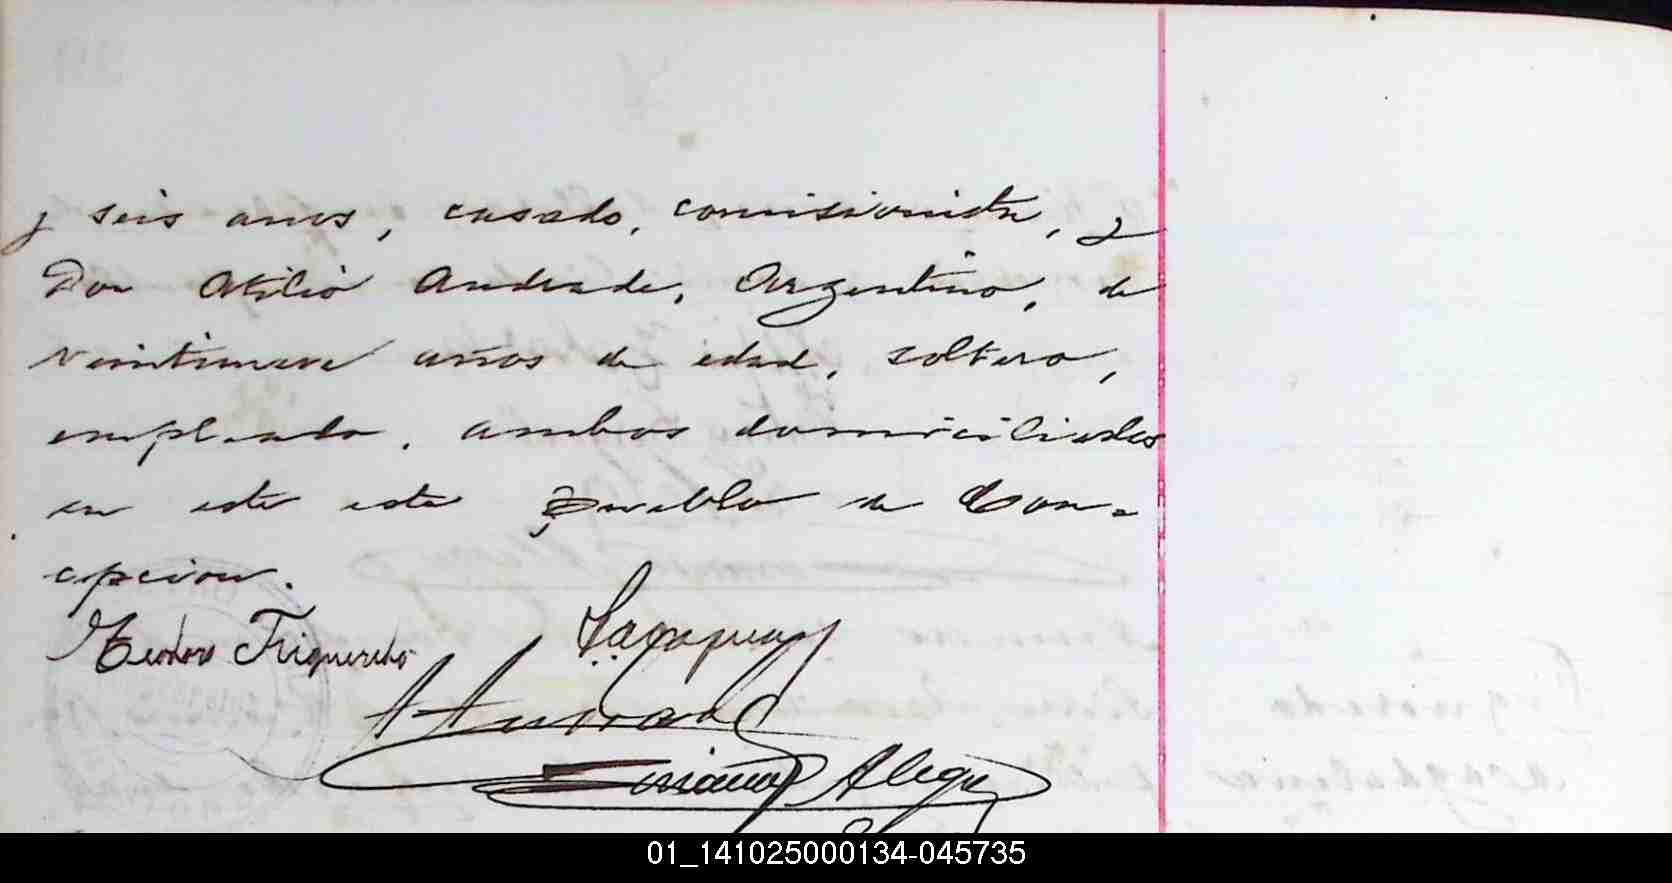 y seis anos, casado, comisionista, y
Don Atilio Andrade, Argentino, de
veintinueve años de edad, soltero,
empleado, ambos domiciliados
en este este Pueblo de Con-
cepcion.
Teodoro Figueredo
A Andrade
Soriano Alegre
01_141025000134-045735